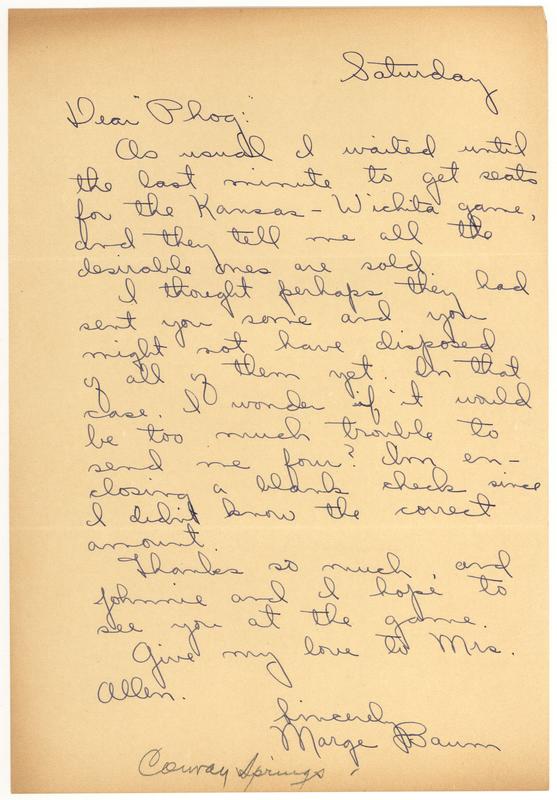 Saturday
Dear "Phog":
As usual I waited until
the last minute to get seats
for the Kansas - Wichita game,
and they tell me all the
desirable ones are sold.
I thought perhaps they had
sent you some and you
might not have disposed
of all of them yet. In that
case, I wonder if it would
be too much trouble to
send me four? I'm en-
closing a blank check since
I didn't know the correct
amount.
Thanks so much, and
Johnnie and I hope to
see you at the game.
Give my love to Mrs.
Allen.
Sincerely
Marge Baum
Conway Springs.